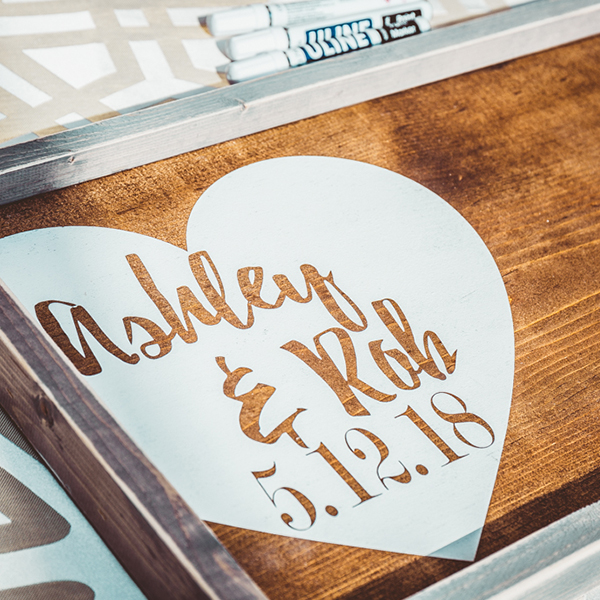 ULINE
ashley
& Rob
5.12.18